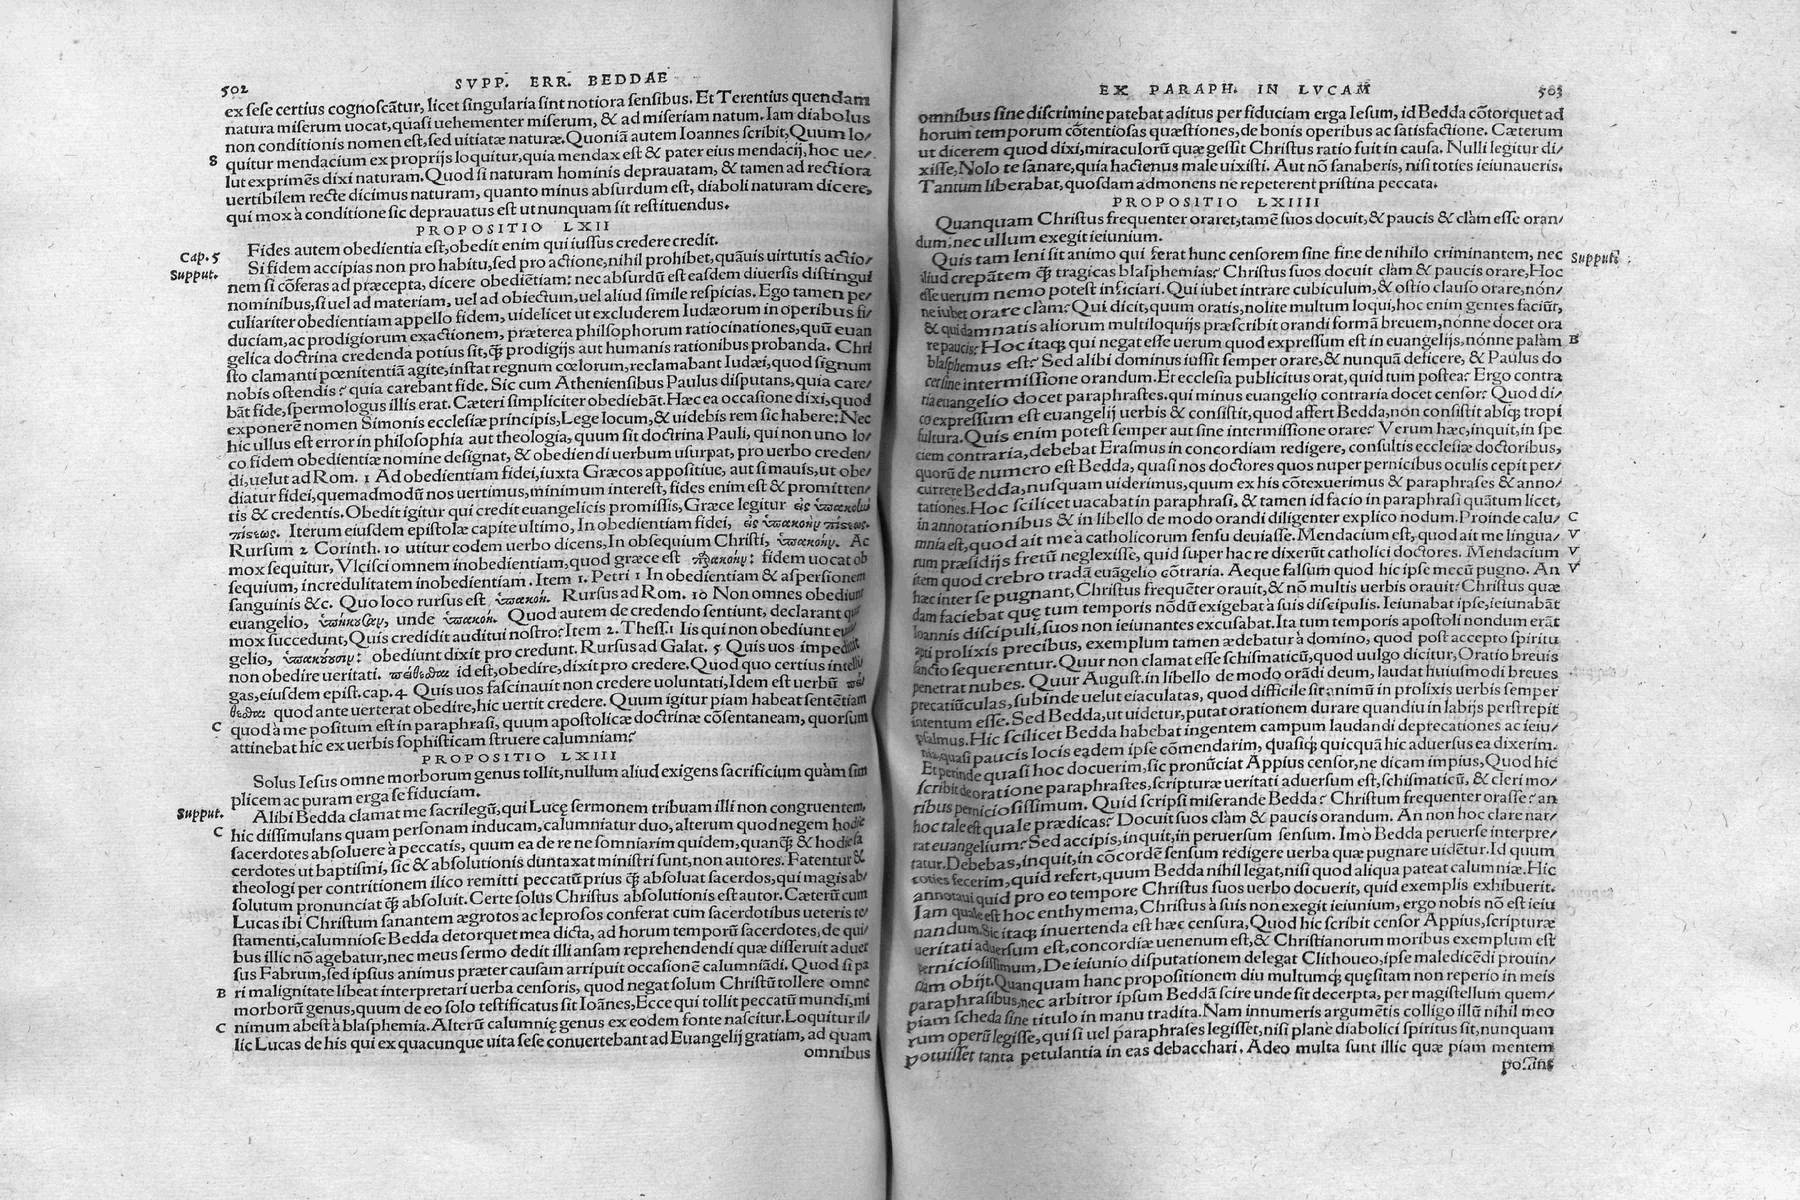 502 SVPP. ERR. BEDDAE
ex sese certius cognoscãtur, licet singularia sint notiora sensibus. Et Terentius quendam
natura miserum uocat, quasi uehementer miserum, & ad miseriam natum. Iam diabolus
non conditionis nomen est, sed uitiatæ naturæ. Quoniã autem Ioannes scribit, Quum lo/
quitur mendacium ex proprijs loquitur, quia mendax est & pater eius mendacij, hoc ue/
lut exprimẽs dixi naturam. Quod si naturam hominis deprauatam, & tamen ad rectiora
uertibilem recte dicimus naturam, quanto minus absurdum est, diaboli naturam dicere,
qui mox à conditione sic deprauatus est ut nunquam sit restituendus.
PROPOSITIO LXII
Cap. 5 Fides autem obedientia est, obedit enim qui iussus credere credit.
Supput. Si fidem accipias non pro habitu, sed pro actione, nihil prohibet, quãuis uirtutis actio/
nem si cõferas ad præcepta, dicere obediẽtiam: nec absurdũ est easdem diuersis distingui
nominibus, si uel ad materiam, uel ad obiectum, uel aliud simile respicias. Ego tamen pe/
culiariter obedientiam appello fidem, uidelicet ut excluderem Iudæorum in operibus fi/
duciam, ac prodigiorum exactionem, præterea philsophorum ratiocinationes, quũ euan
gelica doctrina credenda potius sit, q̃ prodigijs aut humanis rationibus probanda. Chri
sto clamanti pœnitentiã agite, instat regnum cœlorum, reclamabant Iudæi, quod signum
nobis ostendis? quia carebant fide. Sic cum Atheniensibus Paulus disputans, quia care/
bãt fide, spermologus illis erat. Cæteri simpliciter obediebãt. Hæc ea occasione dixi, quod
exponerẽ nomen Simonis ecclesiæ principis, Lege locum, & uidebis rem sic habere: Nec
hic ullus est error in philosophia aut theologia, quum sit doctrina Pauli, qui non uno lo/
co fidem obedientiæ nomine designat, & obediendi uerbum usurpat, pro uerbo creden/
di, uelut ad Rom. 1 Ad obedientiam fidei, iuxta Græcos appositiue, aut si mauis, ut obe/
diatur fidei, quemadmodũ nos uertimus, minimum interest, fides enim est & promitten/
tis & credentis. Obedit igitur qui credit euangelicis promissis, Græce legitur εἰς ὑπακοὴν
πίστεως. Iterum eiusdem epistolæ capite ultimo, In obedientiam fidei, εἰς ὑπακοὴν πίστεως.
Rursum 2 Corinth. 10 utitur eodem uerbo dicens, In obsequium Christi, ὑπακοὴν. Ac
mox sequitur, Vlcisci omnem inobedientiam, quod græce est παρακοήν: fidem uocat ob
sequium, incredulitatem inobedientiam. Item 1. Petri 1 In obedientiam & aspersionem
sanguinis &c. Quo loco rursus est ὑπακοή. Rursus ad Rom. 10 Non omnes obediunt
euangelio, ὑπήκουσαν, unde ὑπακοή. Quod autem de credendo sentiunt, declarant quæ
mox succedunt, Quis credidit auditui nostro? Item 2. Thess. 1 Iis qui non obediunt euan
gelio, ὑπακούουσιν: obediunt dixit pro credunt. Rursus ad Galat. 5 Quis uos impediuit
non obedire ueritati. πείθεσθαι id est, obedire, dixit pro credere. Quod quo certius intelli
gas, eiusdem epist. cap. 4 Quis uos fascinauit non credere uoluntati, Idem est uerbũ πεί
θεσθαι quod ante uerterat obedire, hic uertit credere. Quum igitur piam habeat sentẽtiam
C quod à me positum est in paraphrasi, quum apostolicæ doctrinæ cõsentaneam, quorsum
attinebat hic ex uerbis sophisticam struere calumniam?
PROPOSITIO LXIII
Solus Iesus omne morborum genus tollit, nullum aliud exigens sacrificium quàm sim
plicem ac puram erga se fiduciam.
Supput. Alibi Bedda clamat me sacrilegũ, qui Lucę sermonem tribuam illi non congruentem,
C hic dissimulans quam personam inducam, calumniatur duo, alterum quod negem hodie
sacerdotes absoluere à peccatis, quum ea de re ne somniarim quidem, quanq̃ & hodie sa
cerdotes ut baptismi, sic & absolutionis duntaxat ministri sunt, non autores. Fatentur &
theologi per contritionem ilico remitti peccatũ prius q̃ absoluat sacerdos, qui magis ab/
solutum pronunciat q̃ absoluit. Certe solus Christus absolutionis est autor. Cæterũ cum
Lucas ibi Christum sanantem ægrotos ac leprosos conferat cum sacerdotibus ueteris te/
stamenti, calumniose Bedda detorquet mea dicta, ad horum temporũ sacerdotes, de qui/
bus illic nõ agebatur, nec meus sermo dedit illi ansam reprehendendi quæ disseruit aduer
sus Fabrum, sed ipsius animus præter causam arripuit occasionẽ calumniãdi. Quod si pa
B ri malignitate libeat interpretari uerba censoris, quod negat solum Christũ tollere omne
morborũ genus, quum de eo solo testificatus sit Ioãnes, Ecce qui tollit peccatũ mundi, mi
C nimum abest à blasphemia. Alterũ calumnię genus ex eodem fonte nascitur. Loquitur il/
lic Lucas de his qui ex quacunque uita sese conuertebant ad Euangelij gratiam, ad quam
omnibus
EX PARAPH. IN LVCAM 503
omnibus sine discrimine patebat aditus per fiduciam erga Iesum, id Bedda cõtorquet ad
horum temporum cõtentiosas quæstiones, de bonis operibus ac satisfactione. Cæterum
ut dicerem quod dixi, miraculorũ quæ gessit Christus ratio fuit in causa. Nulli legitur di/
xisse, Nolo te sanare, quia hactenus male uixisti. Aut nõ sanaberis, nisi toties ieiunaueris.
Tantum liberabat, quosdam admonens ne repeterent pristina peccata.
PROPOSITIO LXIIII
Quanquam Christus frequenter oraret, tamẽ suos docuit, & paucis & clàm esse oran/
dum, nec ullum exegit ieiunium.
Quis tam leni sit animo qui ferat hunc censorem sine fine de nihilo criminantem, nec Supput.
aliud crepãtem q̃ tragicas blasphemias? Christus suos docuit clàm & paucis orare, Hoc
esse uerum nemo potest inficiari. Qui iubet intrare cubiculum, & ostio clauso orare, nón/
ne iubet orare clàm? Qui dicit, quum oratis, nolite multum loqui, hoc enim gentes faciũt,
& quidam natis aliorum multiloquijs præscribit orandi formã breuem, nónne docet ora
re paucis? Hoc itaq; qui negat esse uerum quod expressum est in euangelijs, nónne palàm B
blasphemus est? Sed alibi dominus iussit semper orare, & nunquã deficere, & Paulus do
cet sine intermissione orandum. Et ecclesia publicitus orat, quid tum postea? Ergo contra
ria euangelio docet paraphrastes. qui minus euangelio contraria docet censor? Quod di/
co expressum est euangelij uerbis & consistit, quod affert Bedda, non consistit absq; tropi
fultura. Quis enim potest semper aut sine intermissione orare? Verum hæc, inquit, in spe
ciem contraria, debebat Erasmus in concordiam redigere, consultis ecclesiæ doctoribus,
quorũ de numero est Bedda, quasi nos doctores quos nuper pernicibus oculis cepit per/
currere Bedda, nusquam uiderimus, quum ex his cõtexuerimus & paraphrases & anno/
tationes. Hoc scilicet uacabat in paraphrasi, & tamen id facio in paraphrasi quãtum licet,
in annotationibus & in libello de modo orandi diligenter explico nodum. Proinde calu/ C
mnia est, quod ait me à catholicorum sensu deuiasse. Mendacium est, quod ait me lingua/ V
rum præsidijs fretũ neglexisse, quid super hac re dixerũt catholici doctores. Mendacium V
item quod crebro tradã euãgelio cõtraria. Aeque falsum quod hic ipse mecũ pugno. An V
hæc inter se pugnant, Christus frequẽter orauit, & nõ multis uerbis orauit? Christus quæ
dam faciebat quę tum temporis nõdũ exigebat à suis discipulis. Ieiunabat ipse, ieiunabãt
Ioannis discipuli, suos non ieiunantes excusabat. Ita tum temporis apostoli nondum erãt
apti prolixis precibus, exemplum tamen ædebatur à domino, quod post accepto spiritu
sancto sequerentur. Quur non clamat esse schismaticũ, quod uulgo dicitur, Oratio breuis
penetrat nubes. Quur August. in libello de modo orãdi deum, laudat huiusmodi breues
precatiũculas, subinde uelut eiaculatas, quod difficile sit animũ in prolixis uerbis semper
intentum esse. Sed Bedda, ut uidetur, putat orationem durare quandiu in labijs perstrepit
psalmus. Hic scilicet Bedda habebat ingentem campum laudandi deprecationes ac ieiu/
nia, quasi paucis locis eadem ipse cõmendarim, quasiq; quicquã hic aduersus ea dixerim.
Et perinde quasi hoc docuerim, sic pronũciat Appius censor, ne dicam impius, Quod hic
scribit de oratione paraphrastes, scripturæ ueritati aduersum est, schismaticũ, & cleri mo/
ribus perniciosissimum. Quid scripsi miserande Bedda? Christum frequenter orasse? an
hoc tale est quale prædicas? Docuit suos clàm & paucis orandum. An non hoc clare nar/
rat euangelium? Sed accipis, inquit, in peruersum sensum. Imò Bedda peruerse interpre/
tatur. Debebas, inquit, in cõcordẽ sensum redigere uerba quæ pugnare uidẽtur. Id quum
toties fecerim, quid refert, quum Bedda nihil legat, nisi quod aliqua pateat calumniæ. Hic
annotaui quid pro eo tempore Christus suos uerbo docuerit, quid exemplis exhibuerit.
Iam quale est hoc enthymema, Christus à suis non exegit ieiunium, ergo nobis nõ est ieiu
nandum. Sic itaq; inuertenda est hæc censura, Quod hic scribit censor Appius, scripturæ
ueritati aduersum est, concordiæ uenenum est, & Christianorum moribus exemplum est
perniciosissimum, De ieiunio disputationem delegat Clithoueo, ipse maledicẽdi prouin/
ciam obijt. Quanquam hanc propositionem diu multumq; quęsitam non reperio in meis
paraphrasibus, nec arbitror ipsum Beddã scire unde sit decerpta, per magistellum quem/
piam scheda sine titulo in manu tradita. Nam innumeris argumẽtis colligo illũ nihil meo
rum operũ legisse, qui si uel paraphrases legisset, nisi planè diabolici spiritus sit, nunquam
potuisset tanta petulantia in eas debacchari. Adeo multa sunt illic quæ piam mentem